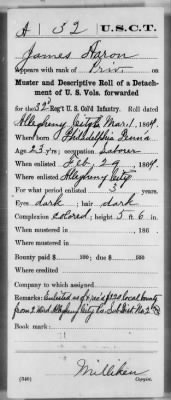 A | 32 | U.S.C.T.
James Aaron
Appears with rank of Priv. on
Muster and Descriptive Roll of a Detach-
ment of U. S. Vols. forwarded
for the 32" Reg't U. S. Col'd Infantry. Roll dated
Allegheny City Pa Mar. 1, 1864.
Where born Philadelphia Penn'a
Age 23 y'rs; occupation Laborer
When enlisted Feb. 29, 1864.
Where enlisted Allegheny City
For what period enlisted 3 years.
Eyes dark; hair dark
Complexion colored; height 5 ft. 6 in.
When mustered in , 186
Where mustered in
Bounty paid $ 100; due $ 100
Where credited
Company to which assigned
Remarks: Enlisted as of local bounty
from 2 Ward Allegheny City Pa. Sub Dist No. 2
Book mark:
Milliken
(340) Copyist.